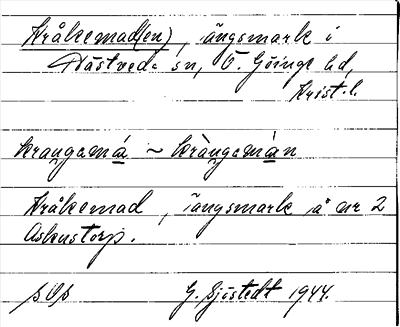 Kråkemad(en), ängsmark i
Nästveds sn, Ö. Göinge hd,
Krist. l.
kraugamá ~ kràugamàn
Kråkemad, ängsmark å nr 2
Askustorp.
G. Sjöstedt 1944.